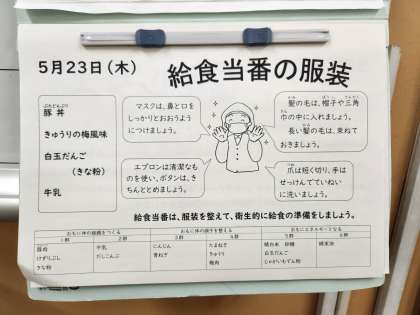 5月23日（木）
給食当番の服装
ぶたどんぶり
豚丼
きゅうりの梅風味
白玉だんご
（きな粉）
牛乳
マスクは、鼻と口を
しっかりとおおうよう
につけましょう。
髪の毛は、帽子や三角
巾の中に入れましょう。
長い髪の毛は、束ねて
おきましょう。
エプロンは清潔なも
のを使い、ボタンは、き
ちんととめましょう。
爪は短く切り、手は
せっけんでていねい
に洗いましょう。
給食当番は、服装を整えて、衛生的に給食の準備をしましょう。
おもに体の組織をつくる
おもに体の調子を整える
おもにエネルギーとなる
1群
2群
3群
4群
5群
6群
豚肉
けずりぶし
きな粉
牛乳
だしこんぶ
にんじん
青ねぎ
たまねぎ
きゅうり
梅肉
精白米 砂糖
白玉だんご
じゃがいもでん粉